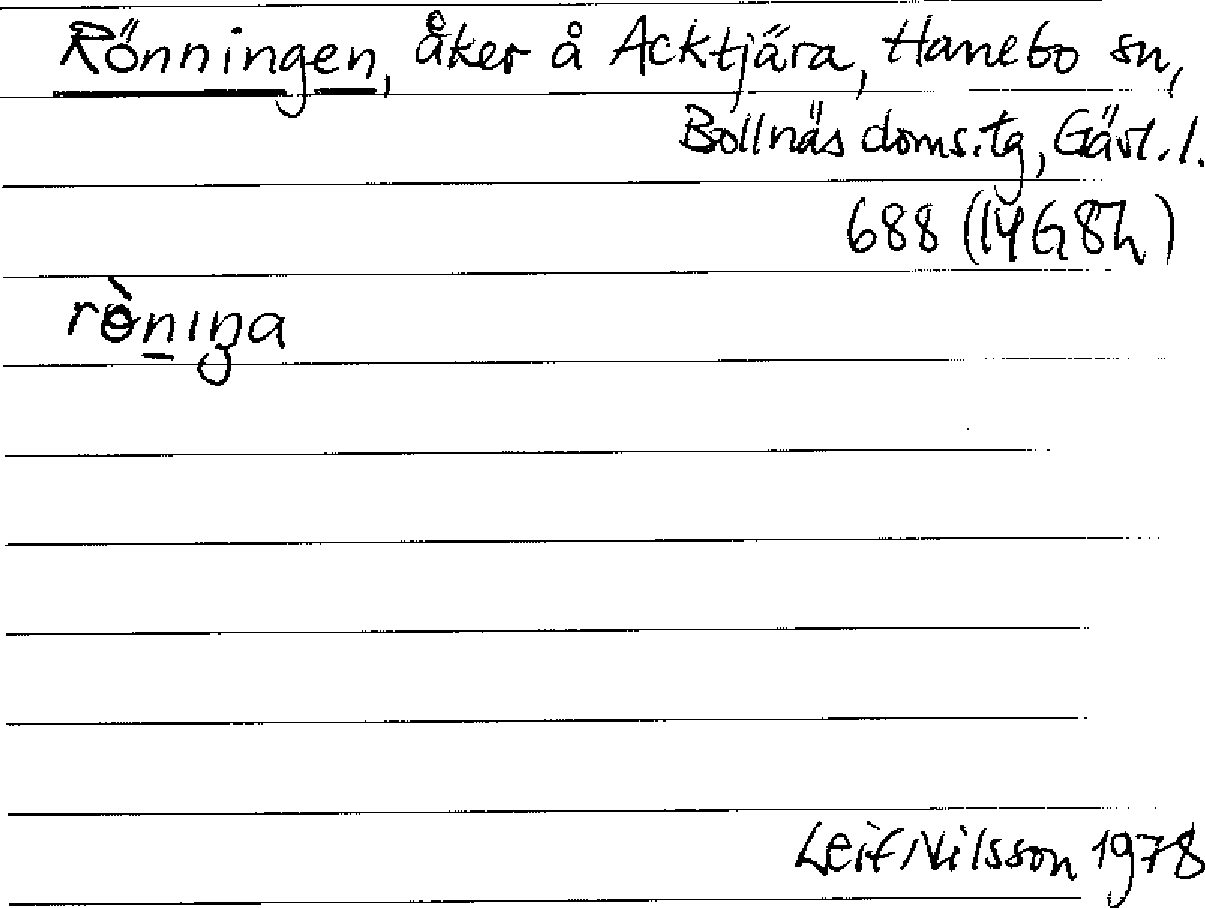 Rönningen, åker å Acktjära, Hanebo sn,
Bollnäs doms.tg, Gävl.l.
688 (14G8h)
rὸ̱nıŋa
Leif Nilsson 1978